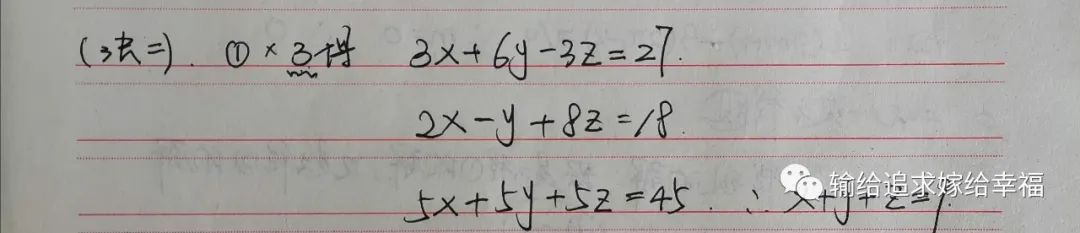 (法二). ① × 3得 3x+6y-3z=27.
2x-y+8z=18.
5x+5y+5z=45. ∴ x+y+z=9.
输给追求嫁给幸福